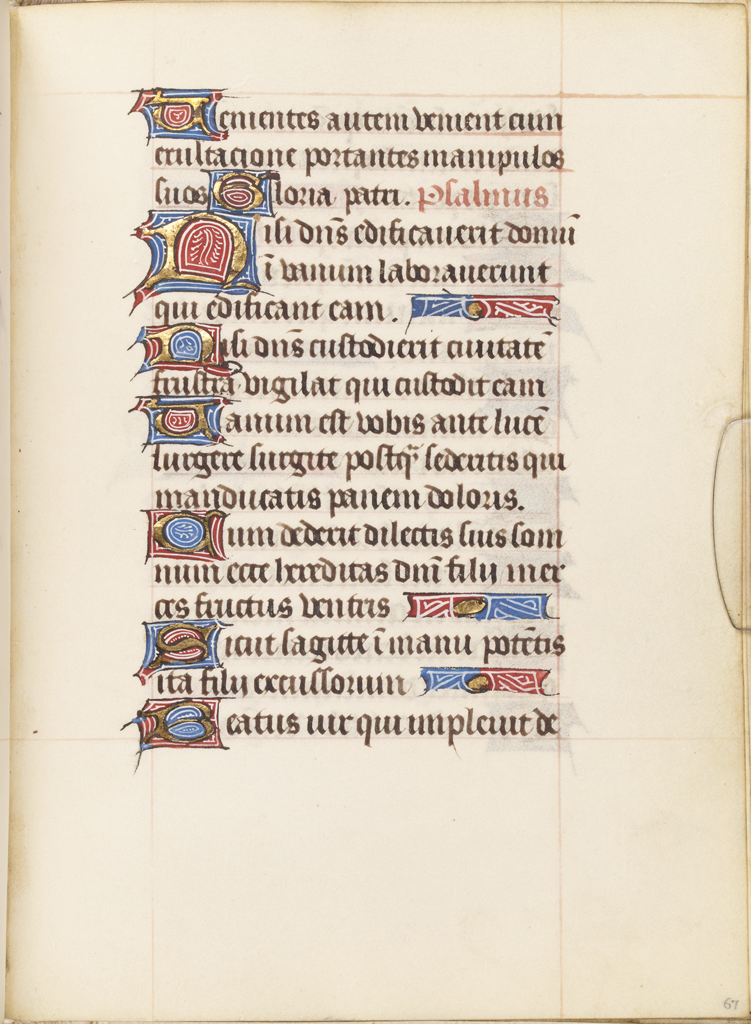 Uenientes autem venient cum
exultacione portantes manipulos
suos Gloria patri. psalmus
Nisi dn̄s edificauerit domū
ī vanum laborauerunt
qui edificant eam.
Nisi dn̄s custodierit ciuitatē
frustra vigilat qui custodit eam
Uanum est vobis ante lucē
surgere surgite postq̄ sederitis qui
manducatis panem doloris.
Cum dederit dilectis suis som
num ecce hereditas dn̄i filij mer
ces fructus ventris
Sicut sagitte ī manu potētis
ita filij excussorum
Beatus uir qui impleuit de
67